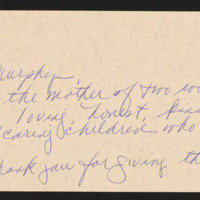 Murphey,
the mother of two wo
loving, honest, kin
caring children who
hank you for giving th